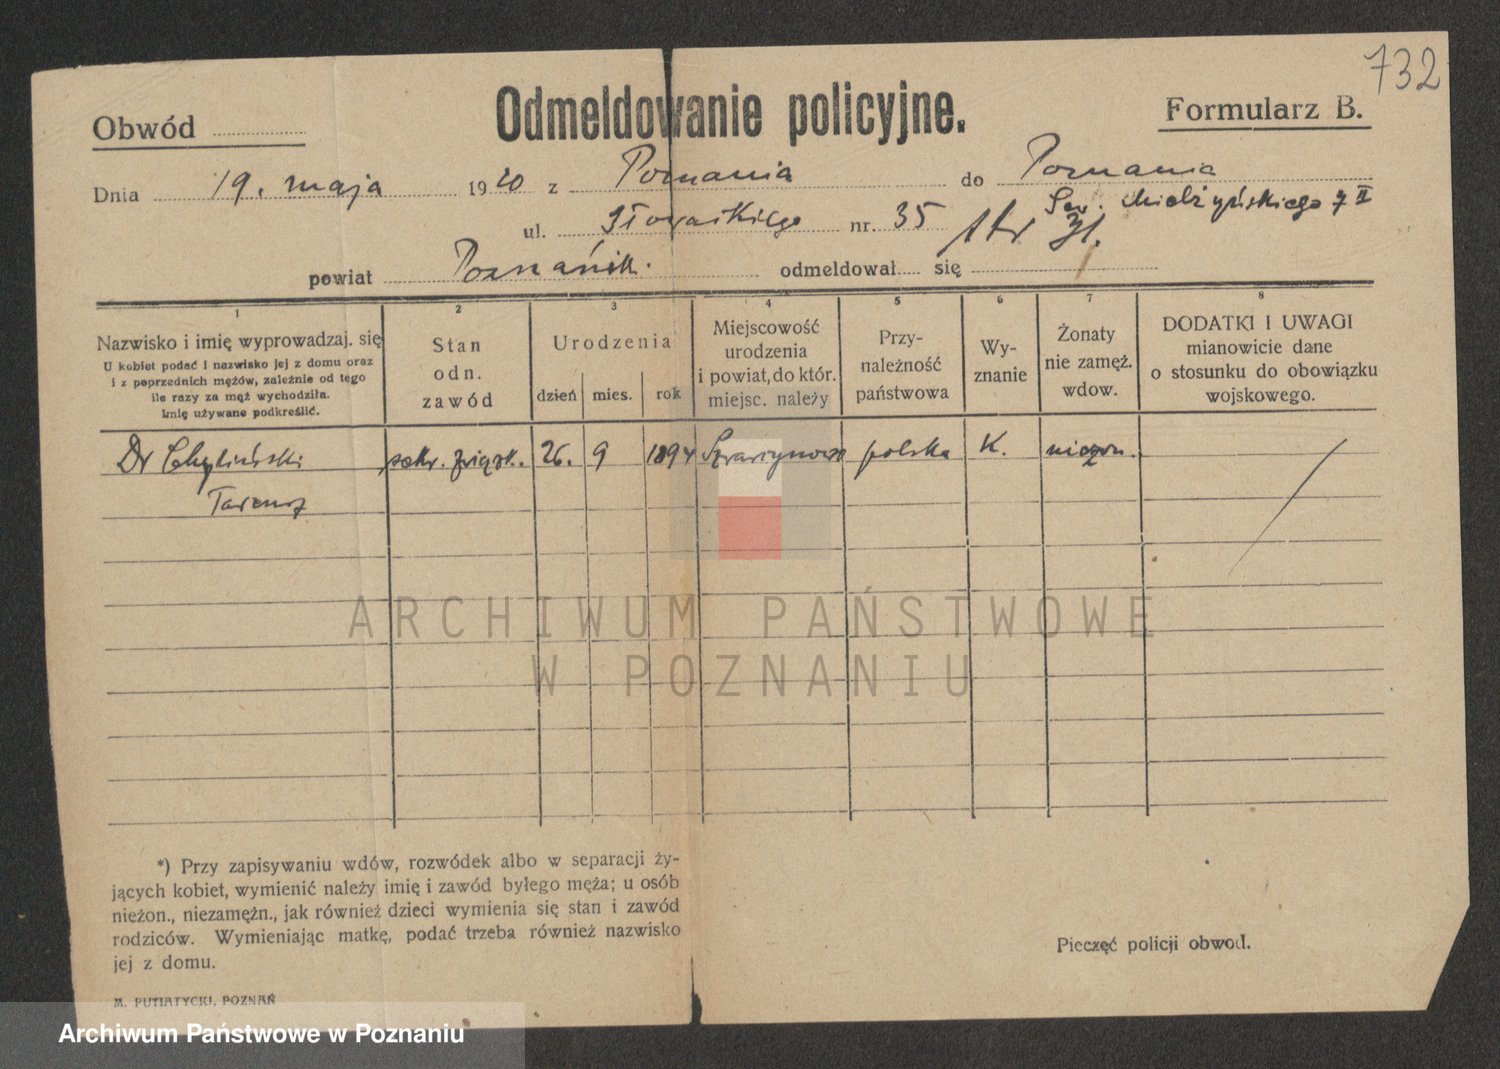 732
Obwód
Odmeldowanie policyjne.
Formularz B.
Dnia 19. maja 1920 z Poznania do Poznania
ul. Słowackiego nr. 35
Sew. Mielżyńskiego 7 II
powiat Poznański. odmeldował.... się
1 2 3 4 5 6 7 8
Nazwisko i imię wyprowadzaj. się
U kobiet podać i nazwisko jej z domu oraz
i z poprzednich mężów, zależnie od tego
ile razy za mąż wychodziła.
Imię używane podkreślić.
Stan
odn.
zawód
Urodzenia
dzień mies. rok
Miejscowość
urodzenia
i powiat, do któr.
miejsc. należy
Przy-
należność
państwowa
Wy-
znanie
Żonaty
nie zamęż.
wdow.
DODATKI I UWAGI
mianowicie dane
o stosunku do obowiązku
wojskowego.
Dr Chyliński sekr. związk. 26. 9 1894 polska K. nieżon.
ARCHIWUM PAŃSTWOWE
W POZNANIU
*) Przy zapisywaniu wdów, rozwódek albo w separacji ży-
jących kobiet, wymienić należy imię i zawód byłego męża; u osób
nieżon., niezamężn., jak również dzieci wymienia się stan i zawód
rodziców. Wymieniając matkę, podać trzeba również nazwisko
jej z domu.
Pieczęć policji obwod.
M. PUTIATYCKI, POZNAŃ
Archiwum Państwowe w Poznaniu